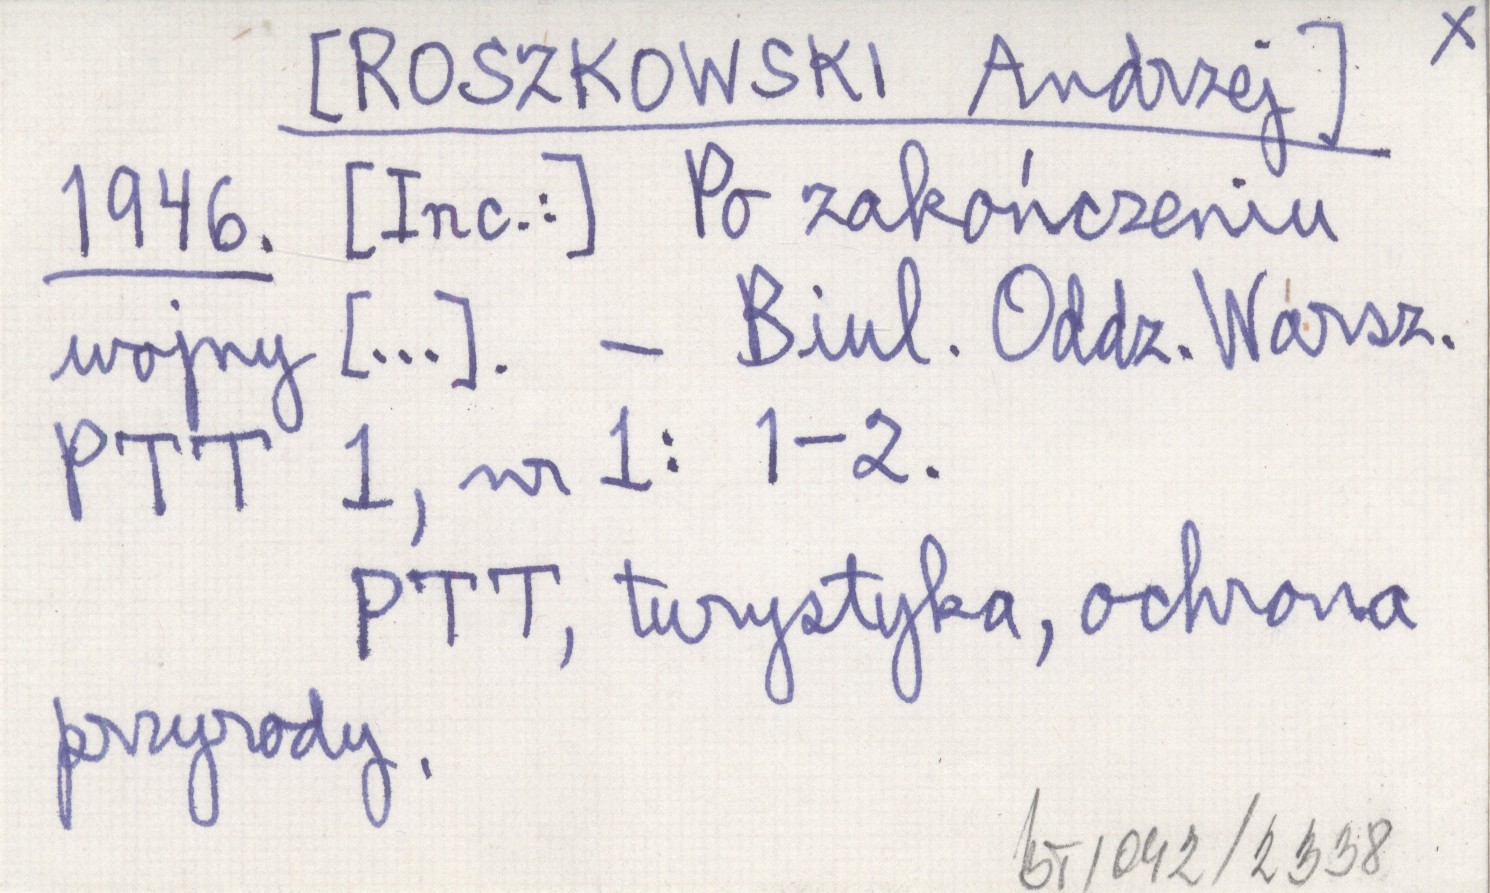 [ROSZKOWSKI Andrzej] x
1946. [Inc.:] Po zakończeniu
wojny [...]. – Biul. Oddz. Warsz.
PTT 1, nr 1: 1–2.
PTT, turystyka, ochrona
przyrody.
/042/2338